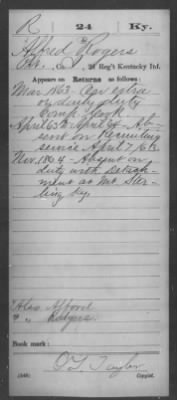 R 24 Ky.
Alfred Rogers
Co. 24 Reg't Kentucky Inf.
Appears on Returns as follows:
Mar 1863 - On extra
or daily duty
Comp. Cook.
April 63 to April 64 - Ab-
sent on Recruiting
service April 7, 63.
Nov. 1864 - Absent on
duty with Detach-
ment at Mt. Ster-
ling Ky.
Also Alford
" Rodgers
Book mark:
Taylor
(546) Copyist.